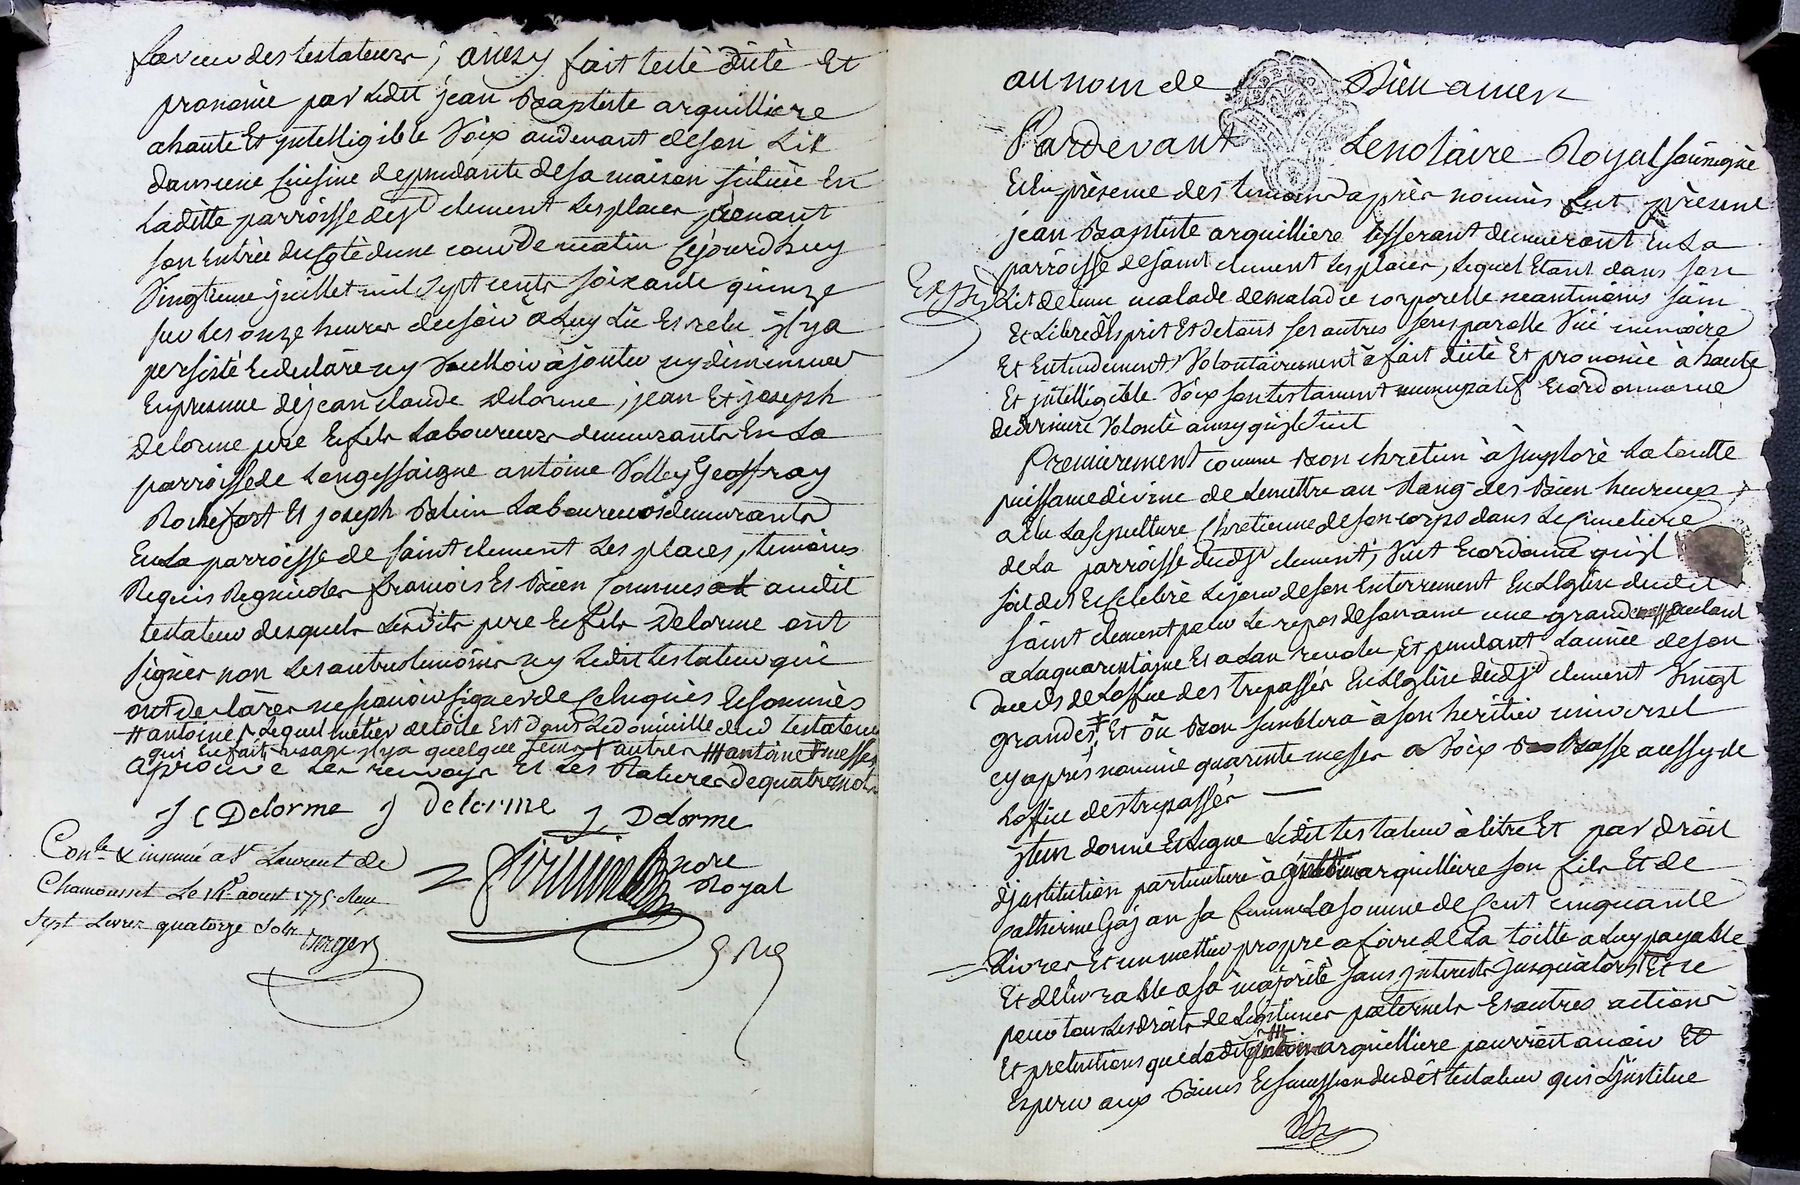 faveur des testateurs, ainsy fait testé dicté Et
prononcé par Ledit jean Baptiste arquilliere
a haute Et jntelligible Voix au devant de son Lit
dans une Cuisine dependante de sa maison scituée En
Laditte parroisse de st clement Les places prenant
son Entrée du Coté dune cour De matin Cejourdhuy
Vingtieme juillet mil sept cents soixante quinze
sur Les onze heures du soir a Luy Lu Et relu jl y a
persisté Et declaré ny Voulloir ajouter ny diminuer
En presence de jean claude Delorme, jean Et joseph
Delorme pere Et fils Laboureurs demeurants En La
parroisse de Longessaigne antoine Volley Geoffray
Rochefort Et joseph Blein Laboureurs demeurants
En La parroisse de saint clement Les places, temoins
Requis Regnicoles francois Et Bien Connus audit
testateur desquels Lesdits pere Et fils Delorme ont
signés non Les autres temoins ny Ledit testateur qui
ont declarés ne scavoir signer de Ce Enquis Et sommés
# antoine Lequel métier de toile Est dans Le domicille dud testateur
qui En fait usage jl y a quelque tems + autres ## antoine ‡ messes
aprouvé Les renvoys Et Les Ratures De quatre mots
J C Delorme J Delorme J Delorme
Conle & insinué a St Laurent de
Chamousset Le 1er aout 1775 Reçu
sept Livres quatorze sols
nore
Royal
au nom de Dieu amen
Pardevant Le notaire Royal soussigné
Et En présence des temoins après nommés fut présent
jean Baptiste arquilliere tisserant demeurant En La
parroisse de saint clement Les places, Lequel Etant dans son
Exp Lit detenu malade de maladie corporelle neantmoins sain
Et Libre d'Esprit Et de tous ses autres sens parolle Vüe memoire
Et Entendement, Volontairement à fait dicté Et prononcé à haute
Et jntelligible Voix son testament nuncupatif Et ordonnance
de derniere Volonté ainsy quil suit
Premierement comme Bon chretien à jmploré La toutte
puissance divine de Le mettre au Rang des Bien heureux
a Elu La sepulture Chretienne de son corps dans Le Cimetiere
de La parroisse dudst clement, Veut Et ordonne qu'jl
soit dit Et célébré Le jour de son Enterrement En L'Eglise dudit
saint clement pour Le repos de son ame une grande messe autant
a La quarentaine Et a Lan revolu, Et pendant L'année de son
deceds de L'office des trepassés En L'Eglise dudst clement Vingt
grandes ‡, Et où Bon semblera à son heritier universel
cy après nommé quarente messes a Voix Basse aussy de
L'office des trepassés
jtem donne Et Legue Ledit testateur à titre Et par droit
d'jnstitution particuliere à arquilliere son fils Et de
Catherine Gojan sa femme La somme de Cent cinquante
Livres Et un mettier propre a faire de La toille a Luy payable
Et delivrable a sa majorité sans jnterets jusqu'alors Et ce
pour tous Les droits de Legitimes paternels Et autres actions
Et pretentions que Ledit arquilliere pourroit avoir Et
Esperer aux Biens Et succession dudit testateur qui L'jnstitue